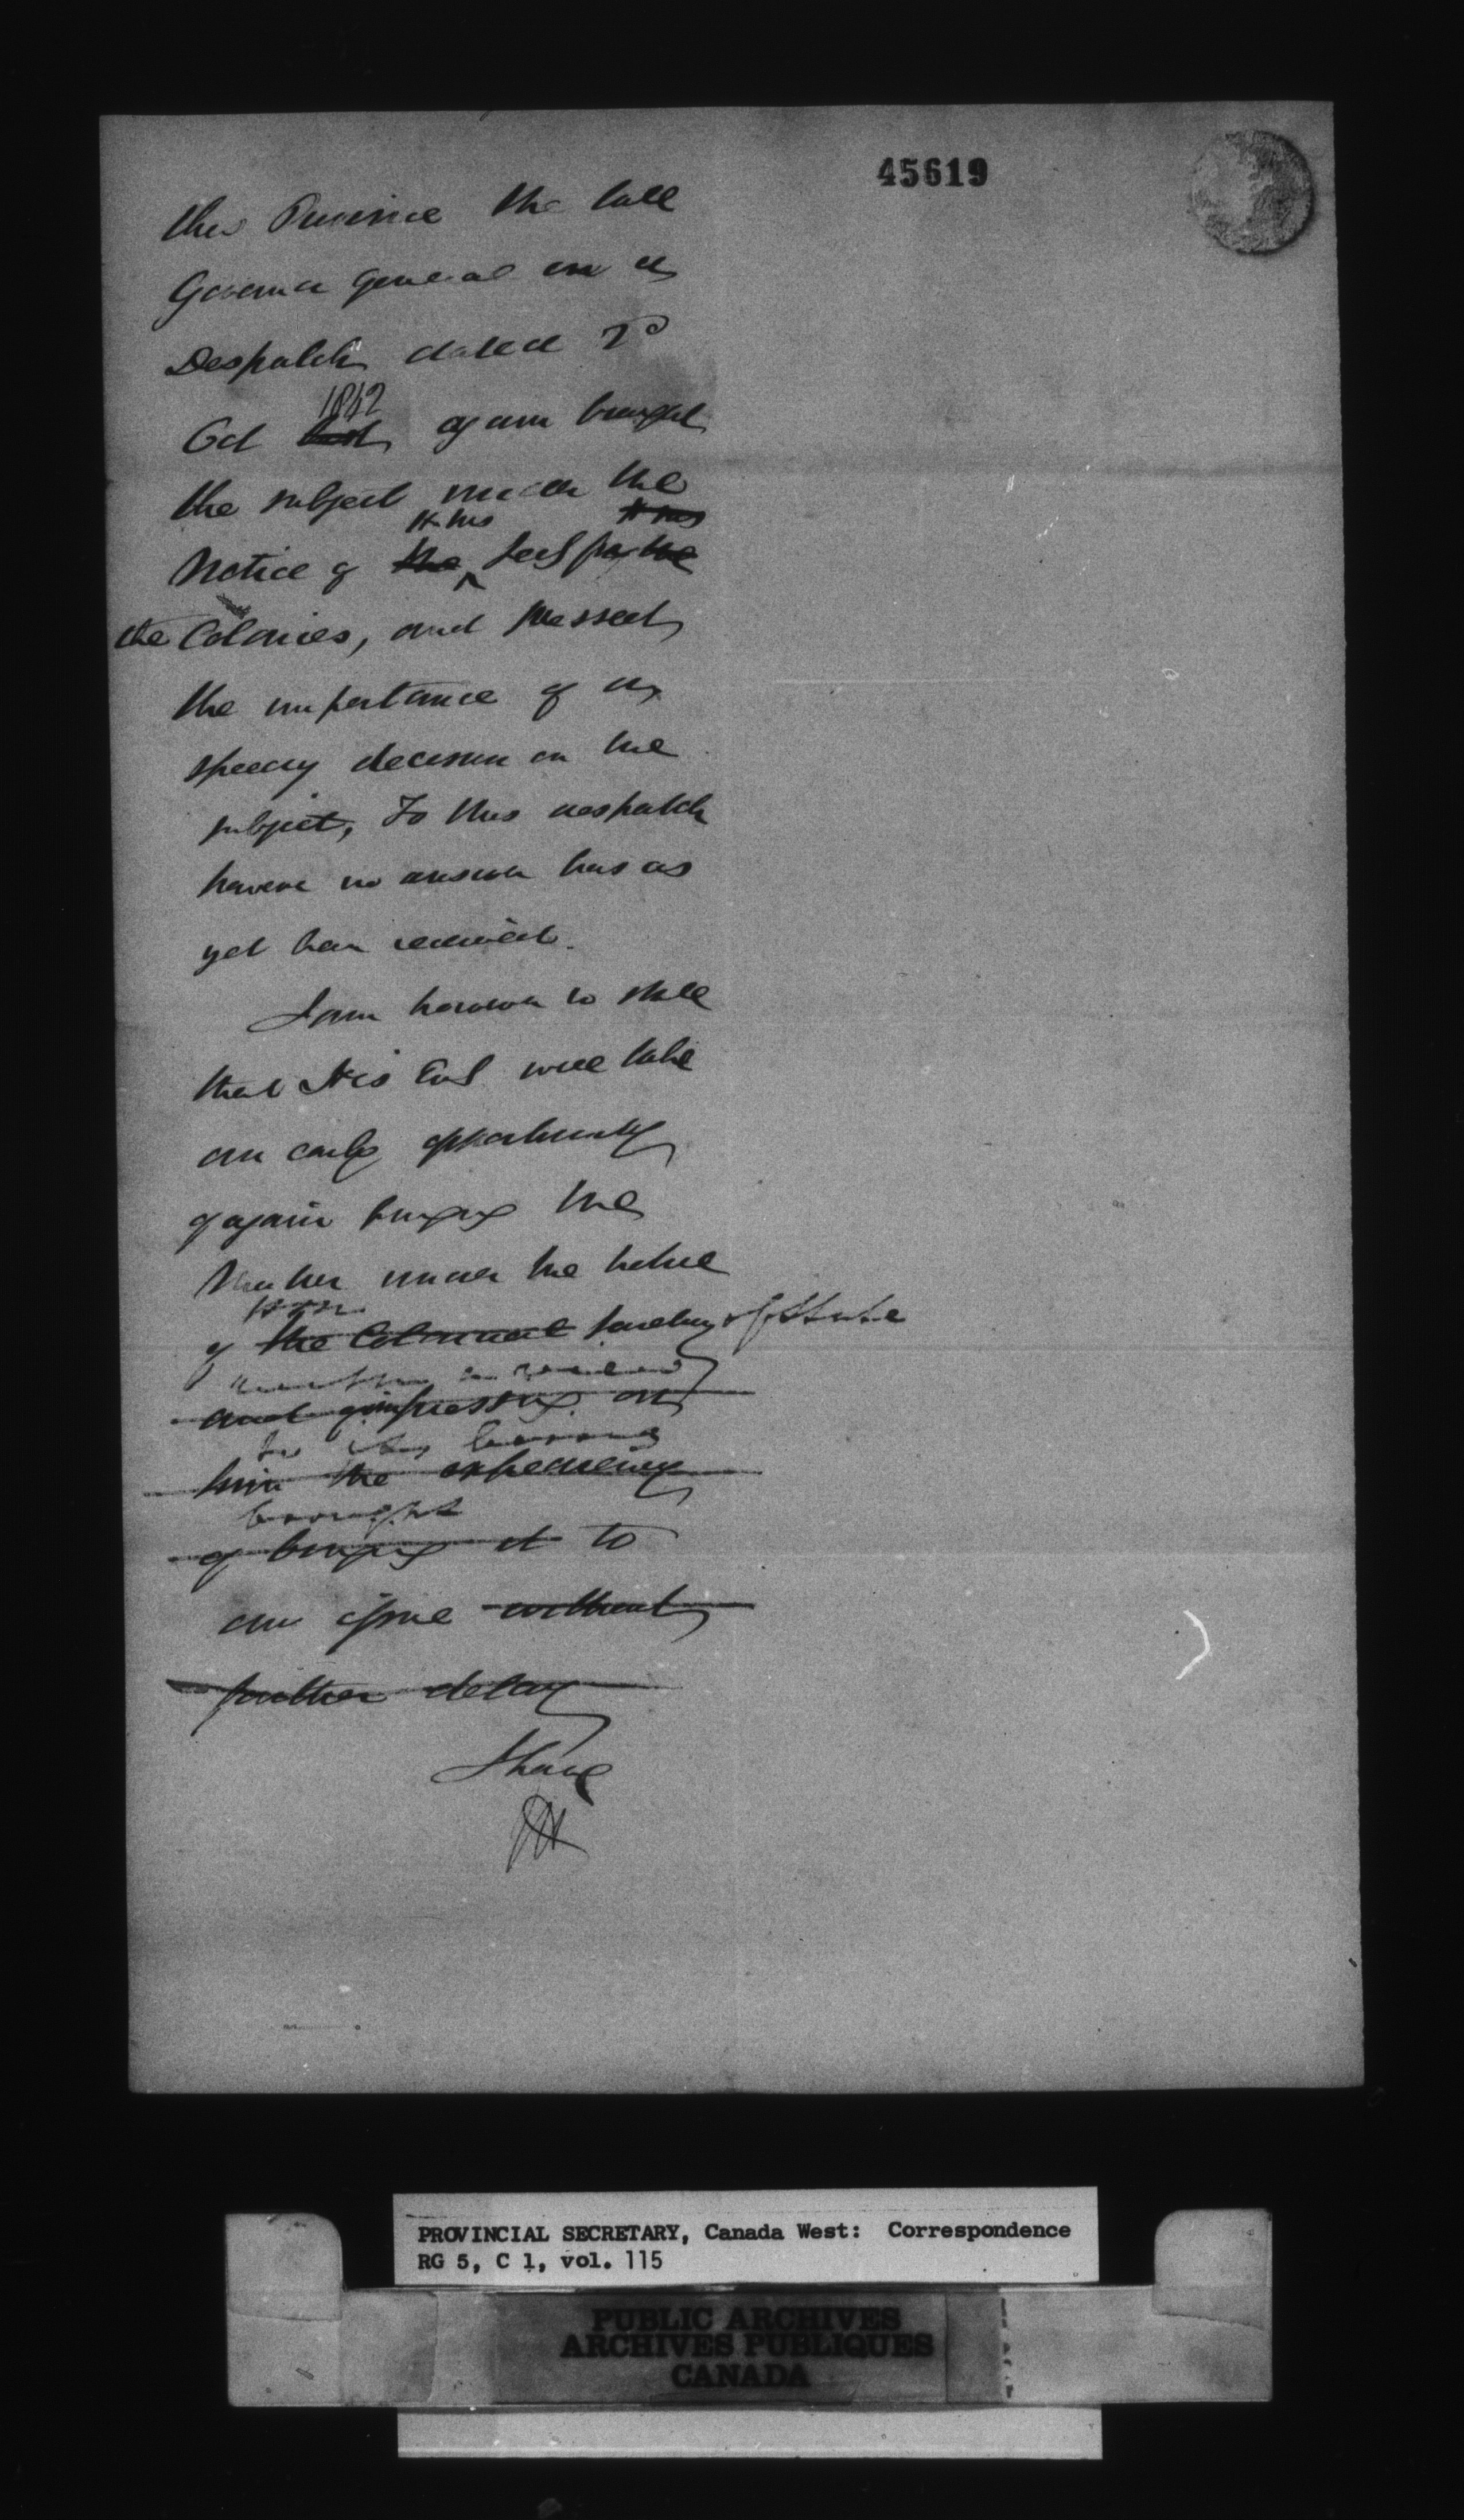 45619
this Province the late
Governor General in a
Despatch dated 7th
1842
Oct last again brought
the subject under the
H Ms H Ms
Notice of the Secy for the
the Colonies, and pressed
the importance of a
speedy decision on the
subject, To this despatch
however no answer has as
yet been received.
I am however to state
that His Exl will take
an early opportunity
of again bringing the
Matter under the notice
of the Colonial Secretary of State
and of impressing on
to its being
him the expediency
brought
of bringing it to
an issue without
further delay
I have
PROVINCIAL SECRETARY, Canada West: Correspondence
RG 5, C 1, vol. 115
PUBLIC ARCHIVES
ARCHIVES PUBLIQUES
CANADA